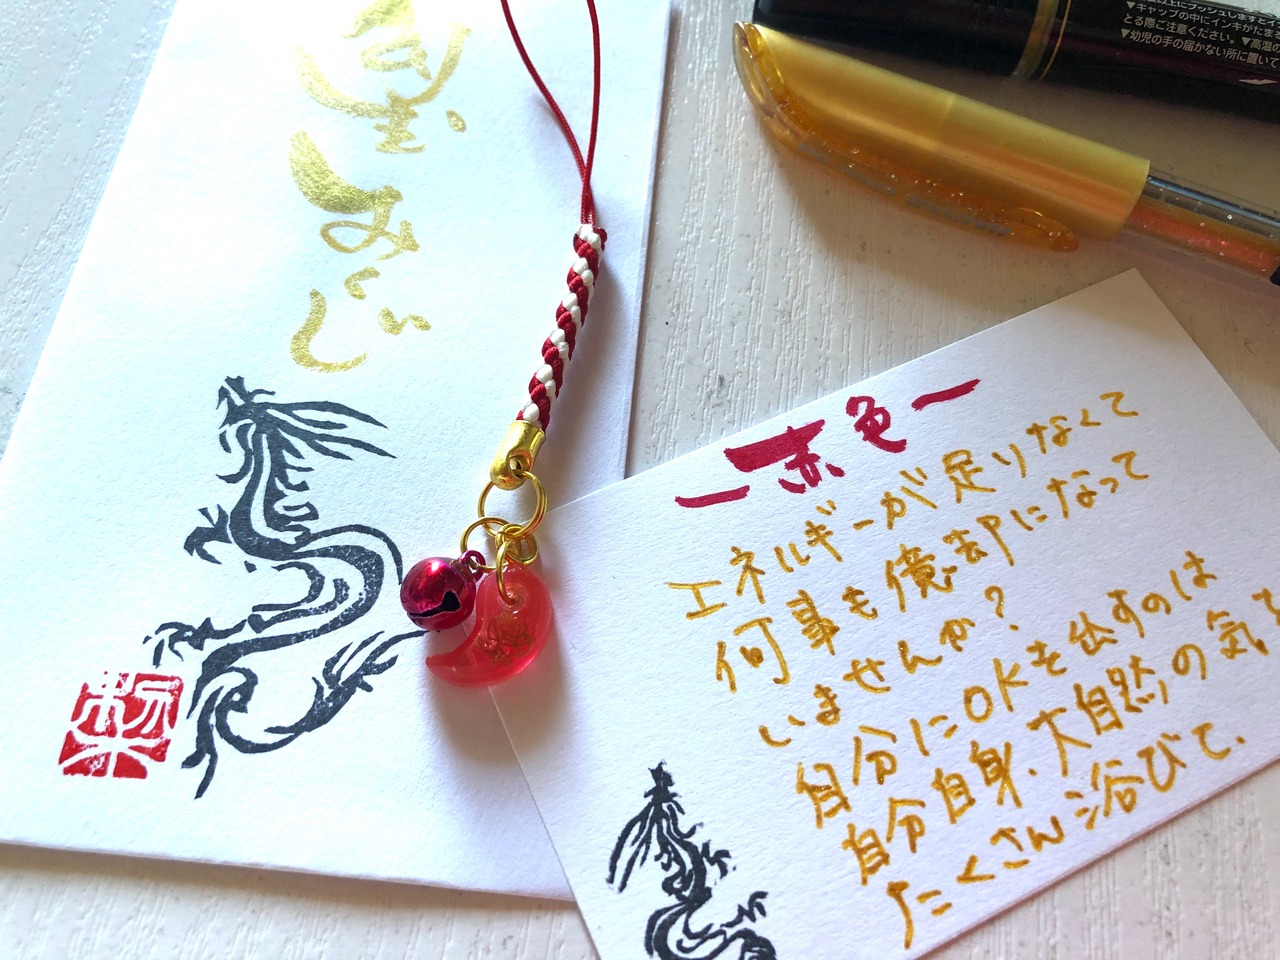 みくじ
ー赤色ー
エネルギーが足りなくて
何事も億劫になって
いませんか?
自分にOKを出すのは
自分自身.大自然の気を
たくさん浴びて.
▼キャップの中にインキがたまる
とる際ご注意ください。▼高温の
▼幼児の手の届かない所に置いて